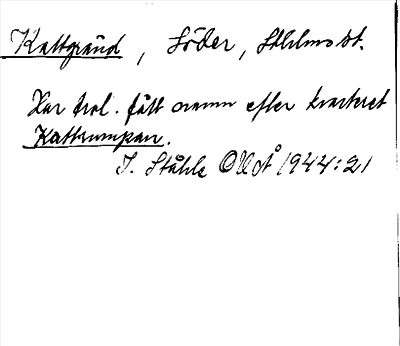 Kattgränd, Söder, Sthlms st.
Har trol. fått namn efter kvarteret
Kattrumpan.
C. Ståhle OUÅ 1944:21